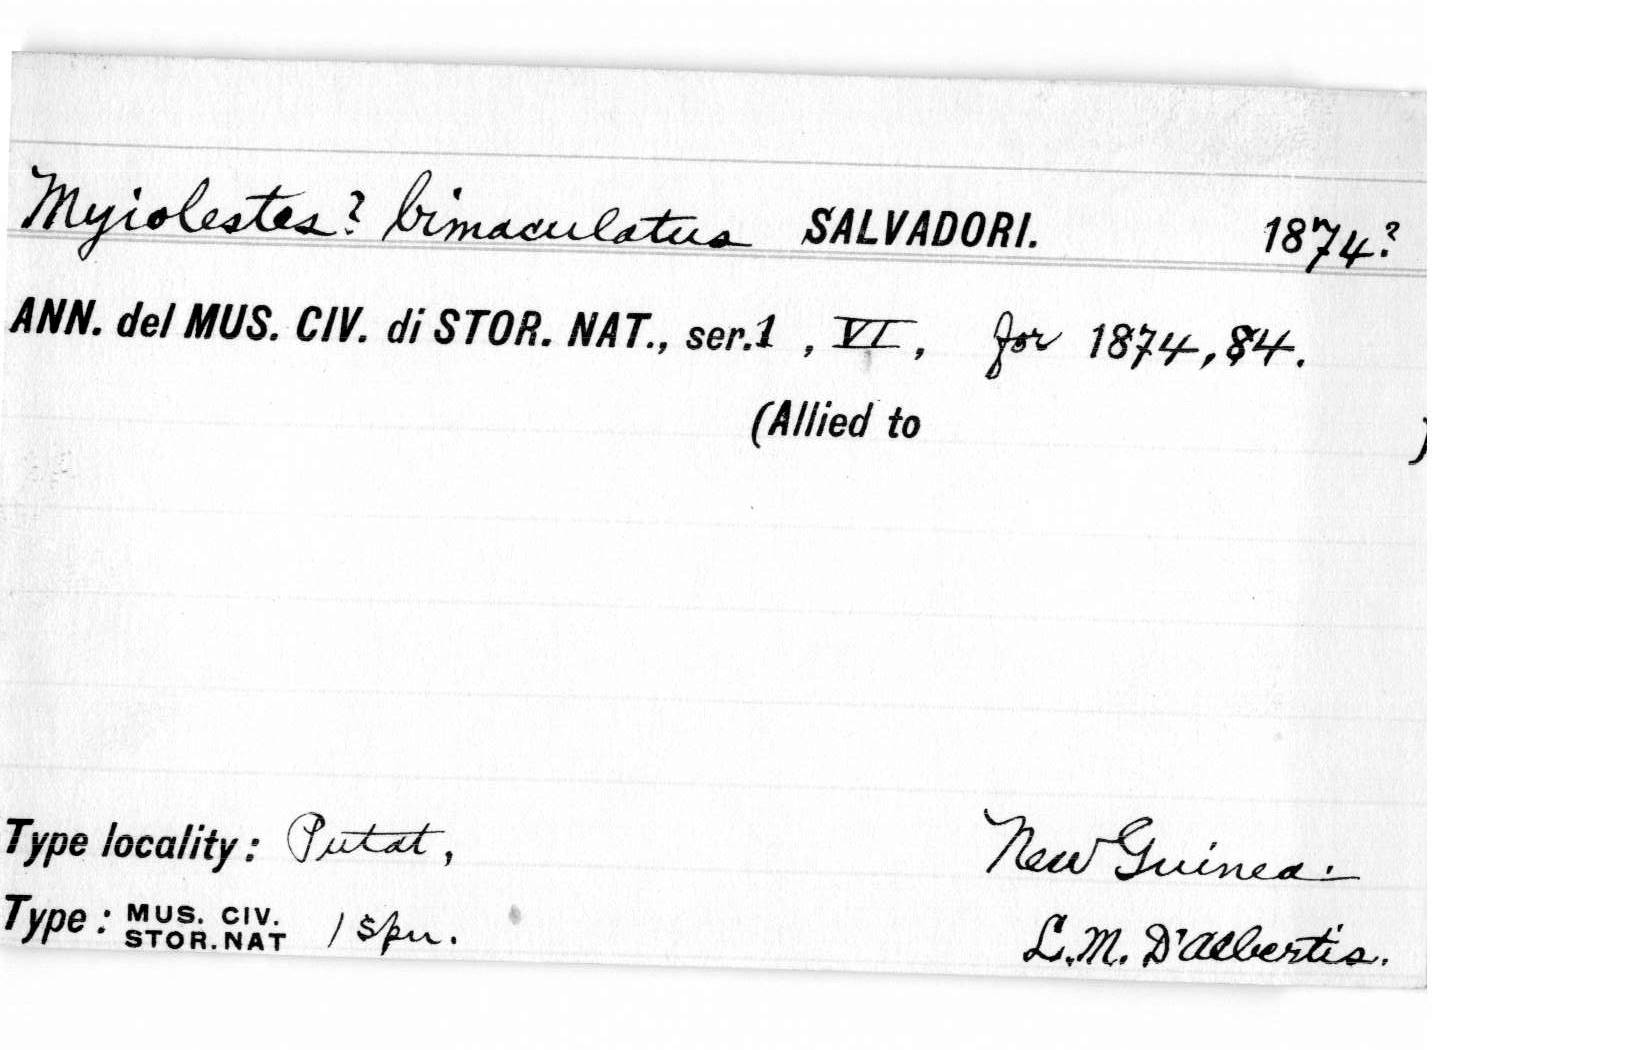 Myiolestes? bimaculatus SALVADORI. 1874?
ANN. del MUS. CIV. di STOR. NAT., ser.1, VI, for 1874, 84.
(Allied to )
Type locality: Putat, New Guinea.
Type: MUS. CIV. STOR. NAT 1 spn. L.M. D'Albertis.